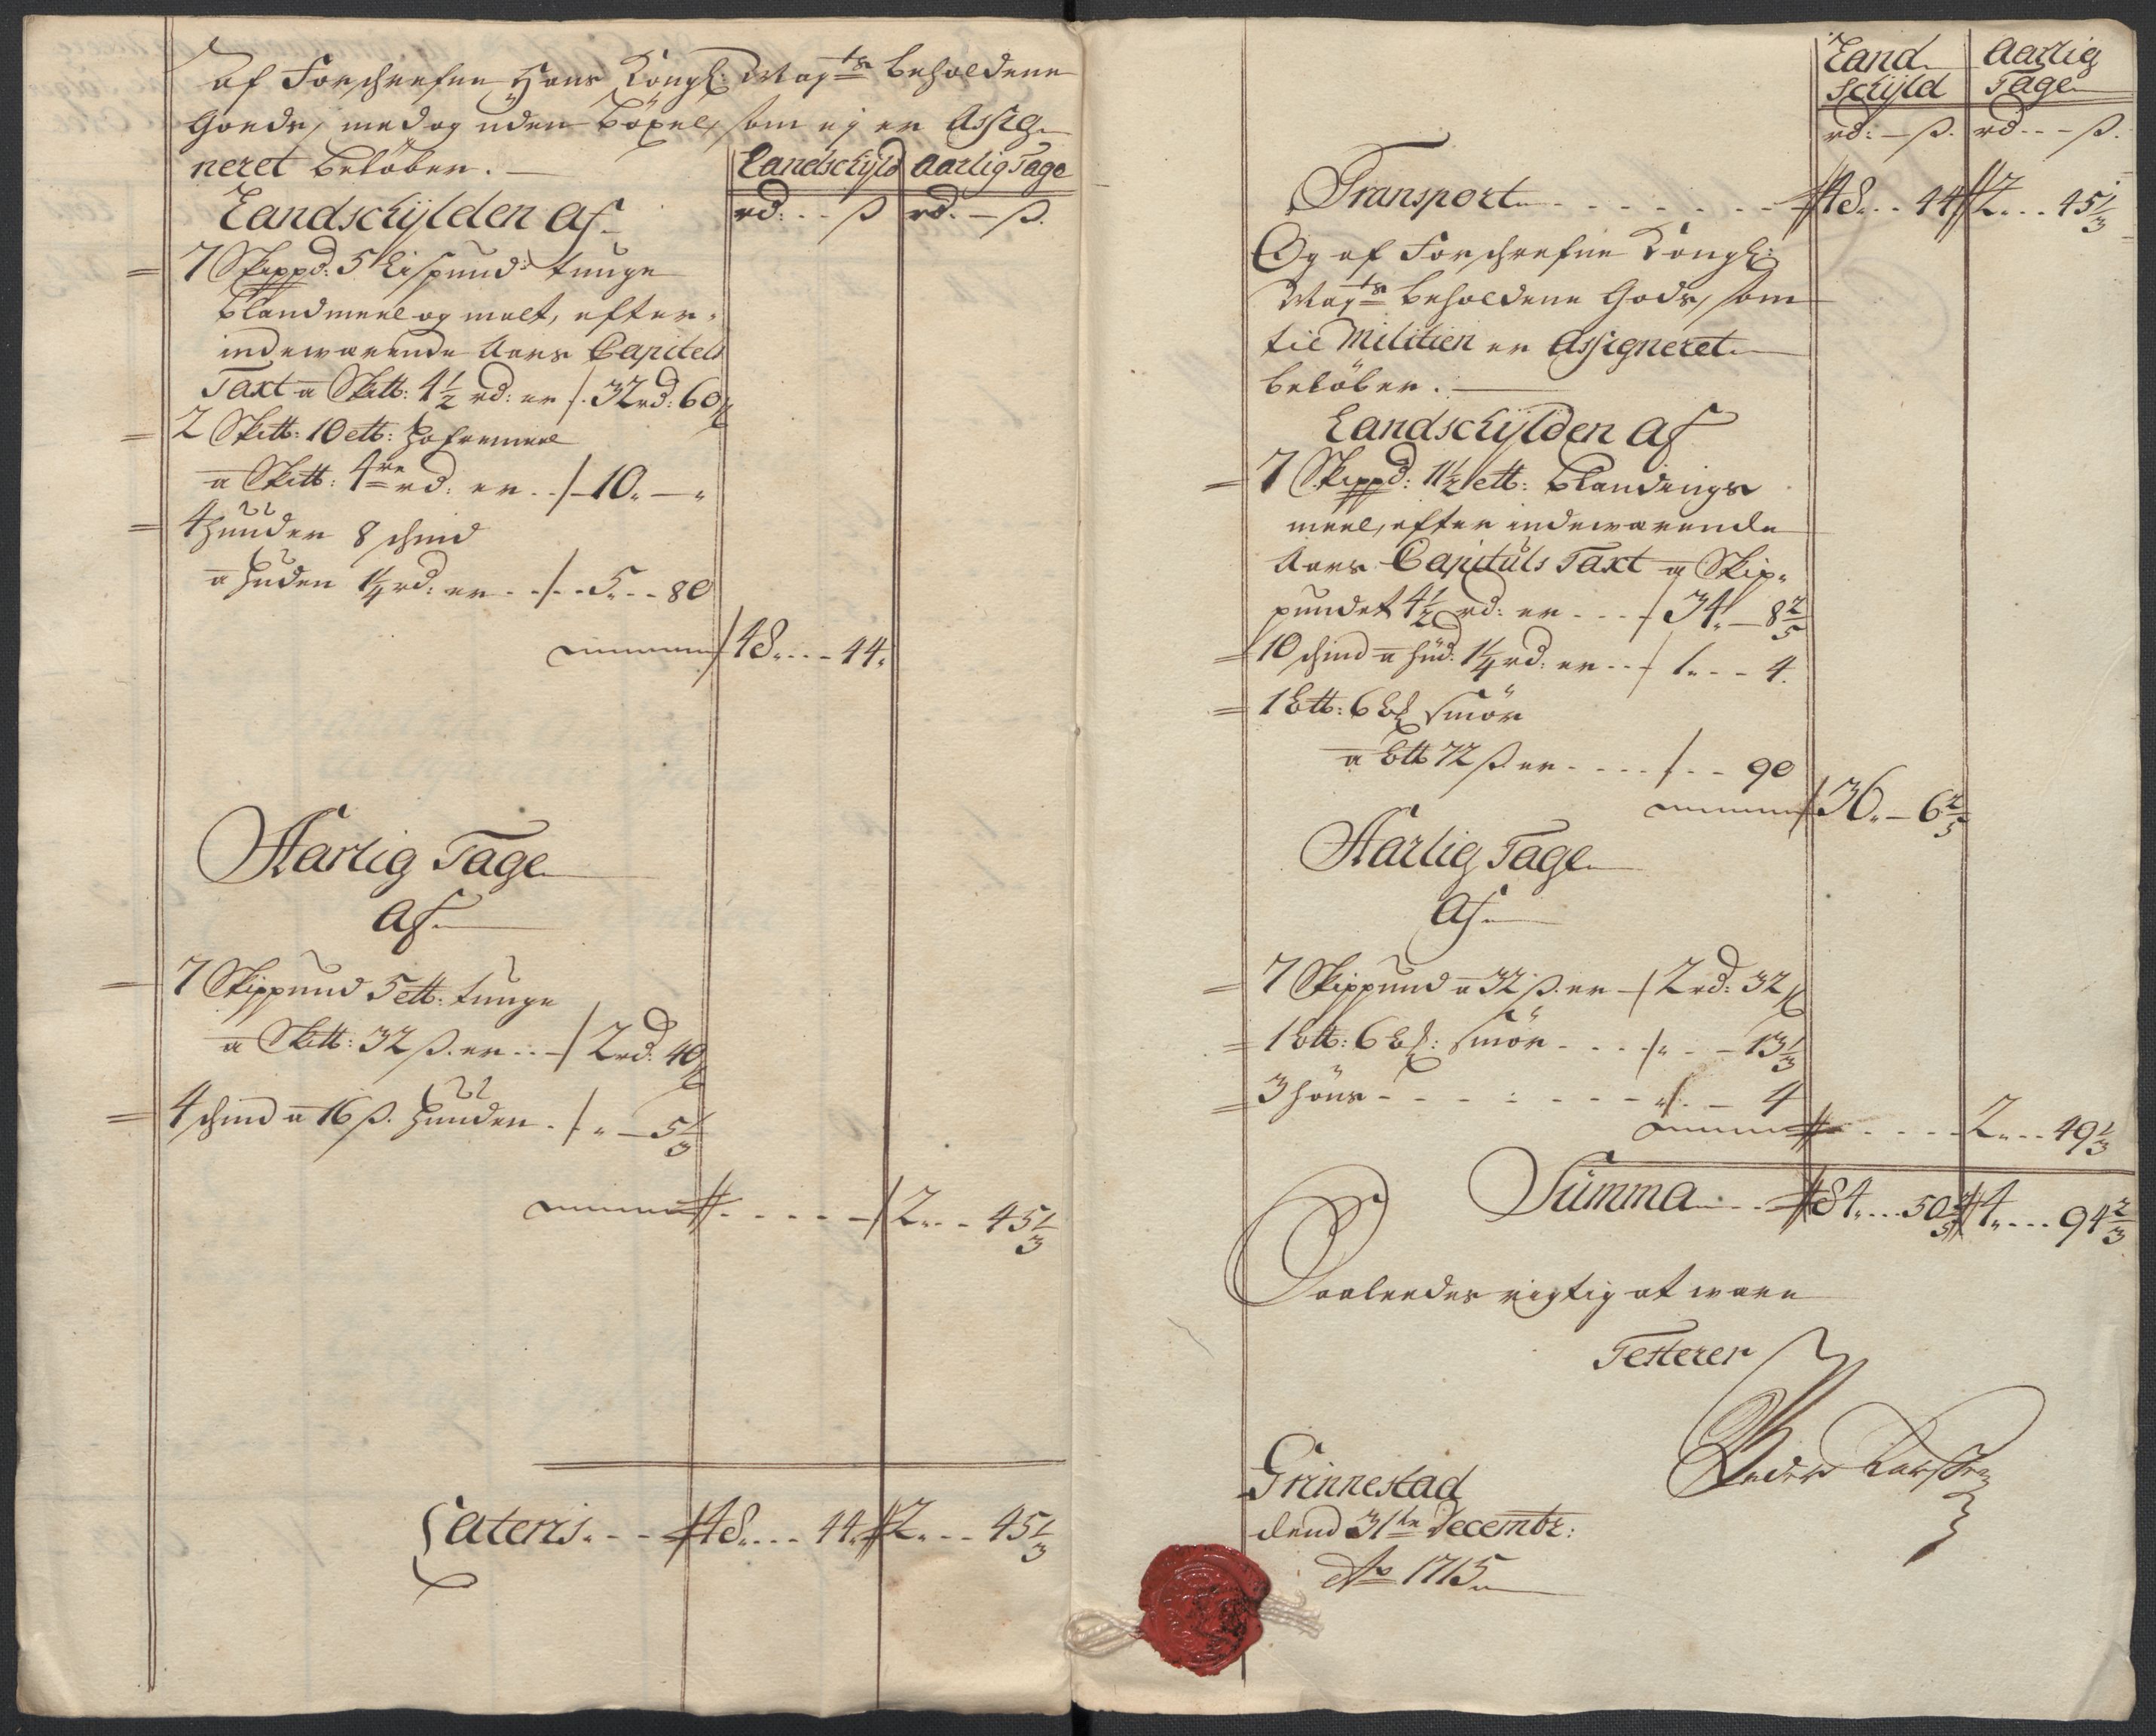 Af Forschrefne Hans Kongl: Mayts beholdene
Goeds, med og uden Böxel, som ej er Assig-
neret belöber.
Landschyld Aarlig Tage
rd: - ß rd. - ß.
Landschylden Af
7 Skippd: 5 Lispund: tunge
blandmeel og malt, efter
indewærende Aars Capitels
Taxt a Sk℔: 4½ rd: er /. 32 rd: 60 ß
2 Sk℔: 10 l℔: hafremeel
a Sk℔: 4re rd: er . . /. 10. — „
4 huuder 8 skind
a huden 1¼ rd: er . . /. . 5. . . 80
/ 48. . . . 44.
Aarlig Tage
Af
7 Skippund 5 l℔: tunge
a Sk℔: 32 ß. er . . / 2 rd: 40 ß
4 skind a 16 ß. huuden . / . „ — 5⅓
// . . . . . / 2. . . 45⅓
Lateris. . . // 48. . . . 44. // 2. . . 45⅓
Land
schyld
Aarlig
Tage
rd: - ß. rd. - ß.
Transport . . . . . . . // 48. . . 44 // 2. . . 45⅓
Og af Forschrefne Kongl:
Mayts beholdene Gods, som
til Militien er Assigneret
belöber.
Landschylden Af
7 Skippd: 11½ l℔: blandings
meel, efter indewærende
Aars Capituls Taxt a Skip-
pundet 4½ rd: er . . . / 34. — 8⅖
10 skind a hud: 1¼ rd: er . . / 1. . . 4.
1 b℔: 6 bl smör
a b℔ 72 ß er . . . . / . . 90
/ 36. — 6⅖
Aarlig Tage
Af
7 Skippund a 32 ß. er / 2 rd: 32 ß
1 b℔: 6 bl: smör . . . /. „ — 13⅓
3 höns . . . . . . . /. — 4
// . . . . 2. . . 49⅓
Summa . . . // 84. . . 50⅖ // 4. . . . 94⅔
Saaledes rigtig at være
Testerer
Peder
Grinnestad
dend 31te Decembr:
Ao 1715